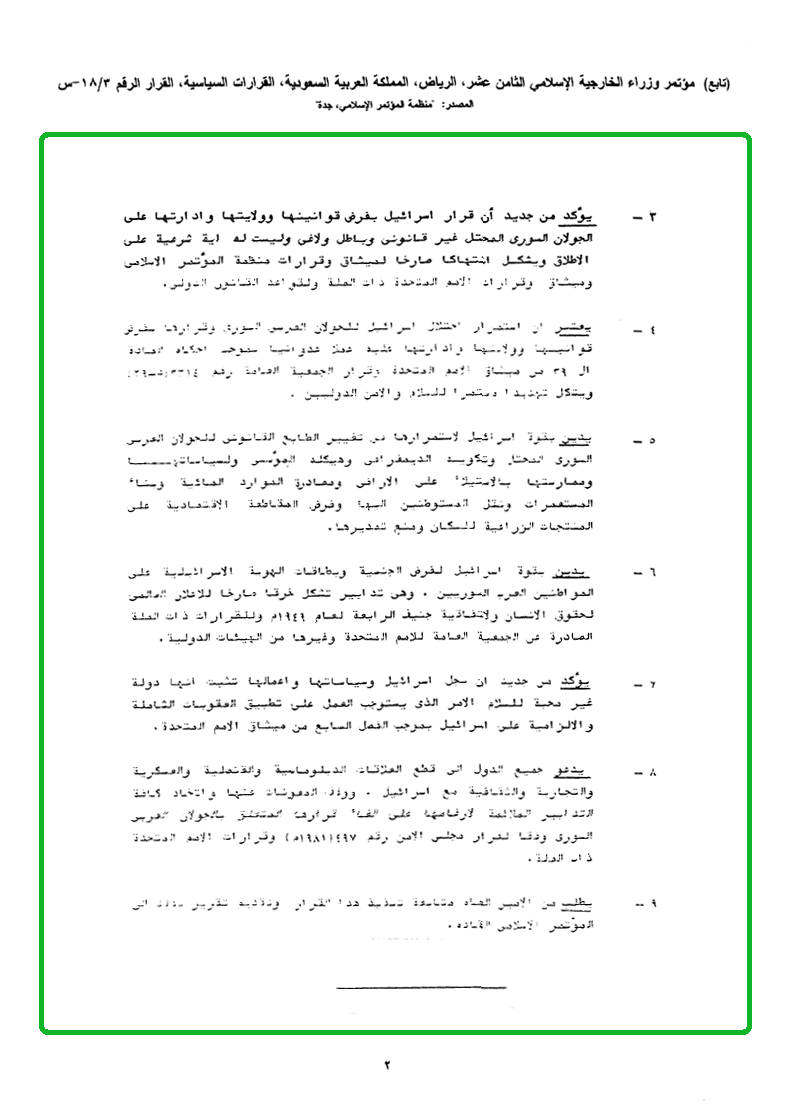 (تابع) مؤتمر وزراء الخارجية الإسلامي الثامن عشر، الرياض، المملكة العربية السعودية، القرارات السياسية، القرار الرقم ١٨/٣-س
المصدر: "منظمة المؤتمر الإسلامي، جدة"
٣ – يؤكد من جديد أن قرار اسرائيل بفرض قوانينها وولايتها وادارتها على
الجولان السورى المحتل غير قانونى وباطل ولاغى وليست له اية شرعية على
الاطلاق ويشكل انتهاكا صارخا لميثاق وقرارات منظمة المؤتمر الاسلامى
وميثاق وقرارات الامم المتحدة ذات الصلة ولقواعد القانون الدولى.
٤ – يعتبر ان استمرار احتلال اسرائيل للجولان العربى السورى وقرارها بفرض
قوانينها وولايتها وادارتها عليه عملا عدوانيا بموجب احكام المادة
ال ٣٩ من ميثاق الامم المتحدة وقرار الجمعية العامة رقم ٣٣١٤(د-٢٩)
ويشكل تهديدا مستمرا للسلام والامن الدوليين .
٥ – يدين بقوة اسرائيل لاستمرارها فى تغيير الطابع القانونى للجولان العربى
السورى المحتل وتكوينه الديمغرافى وهيكله المؤسسى ولسياساتهـــا
وممارستها بالاستيلاء على الاراضى ومصادرة الموارد المائية وبناء
المستعمرات ونقل المستوطنين اليها وفرض المقاطعة الاقتصادية على
المنتجات الزراعية للسكان ومنع تصديرها.
٦ – يدين بقوة اسرائيل لفرض الجنسية وبطاقات الهوية الاسرائيلية على
المواطنين العرب السوريين . وهى تدابير تشكل خرقا صارخا للاعلان العالمى
لحقوق الانسان ولاتفاقية جنيف الرابعة لعام ١٩٤٩م وللقرارات ذات الصلة
الصادرة عن الجمعية العامة للامم المتحدة وغيرها من الهيئات الدولية.
٧ – يؤكد من جديد ان سجل اسرائيل وسياساتها واعمالها تثبت انها دولة
غير محبة للسلام الامر الذى يستوجب العمل على تطبيق العقوبات الشاملة
والالزامية على اسرائيل بموجب الفصل السابع من ميثاق الامم المتحدة.
٨ – يدعو جميع الدول الى قطع العلاقات الدبلوماسية والقنصلية والعسكرية
والتجارية والثقافية مع اسرائيل . ووقف المعونات عنها واتخاذ كافة
التدابير الملائمة لارغامها على الغاء قرارها المتعلق بالجولان العربى
السورى وفقا لقرار مجلس الامن رقم ٤٩٧(١٩٨١م) وقرارات الامم المتحدة
ذات الصلة.
٩ – يطلب من الامين العام متابعة تنفيذ هذا القرار وتقديم تقرير بذلك الى
المؤتمر الاسلامى القادم.
٢